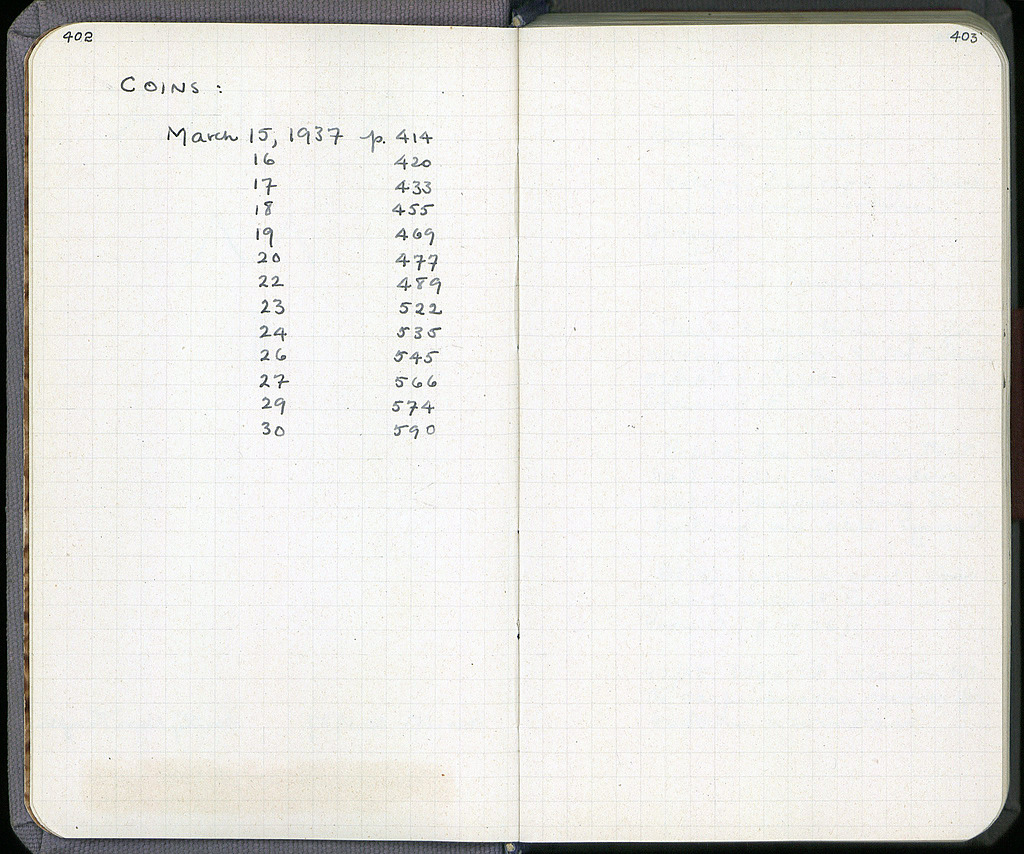 402
COINS :
March 15, 1937 p. 414
16 420
17 433
18 455
19 469
20 477
22 489
23 522
24 535
26 545
27 566
29 574
30 590
403